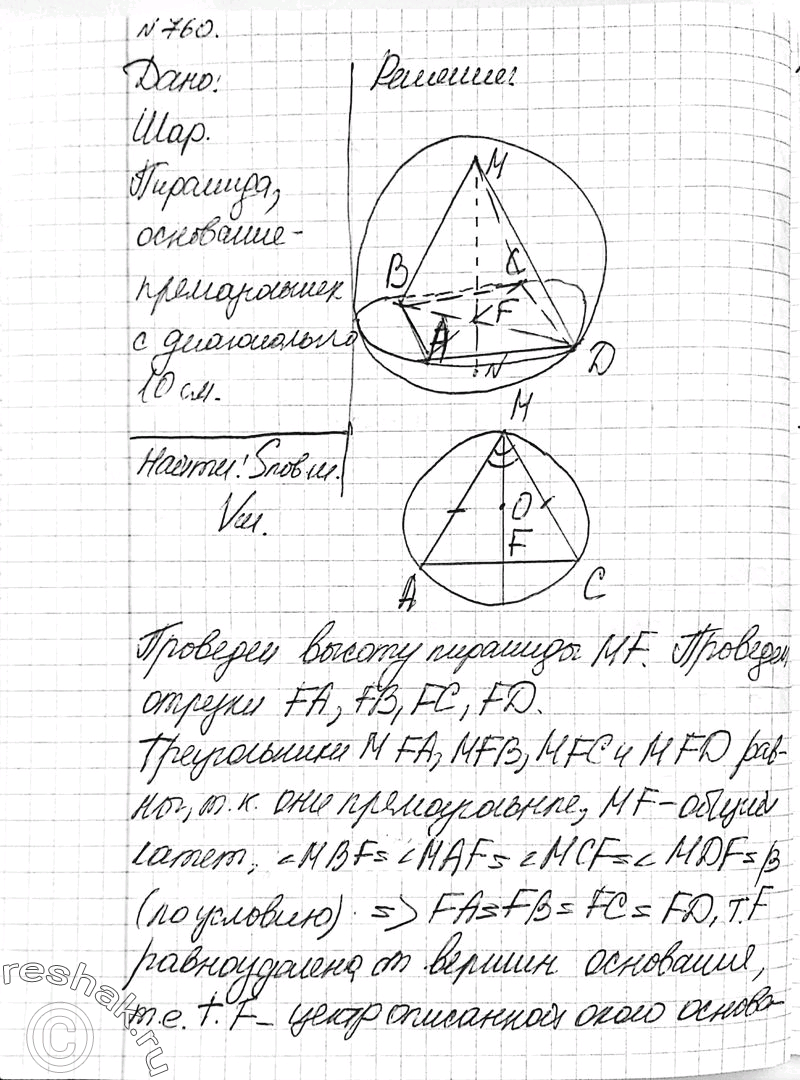 №760.
Дано:
Шар.
Пирамида,
основание-
прямоугольник
с диагональю
10 см.
Найти: Sпов.ш.
Vш.
Решение:
M
B
C
F
A
N
D
M
O
F
A
C
Проведем высоту пирамиды MF. Проведем
отрезки FA, FB, FC, FD.
Треугольники MFA, MFB, MFC и MFD рав-
ны, т.к. они прямоугольные, MF-общий
катет, <MBF=<MAF=<MCF=<MDF=β
(по условию) => FA=FB=FC=FD, т.F
равноудалена от вершин основания,
т.е. т.F- центр описанной около основа-
reshak.ru
©